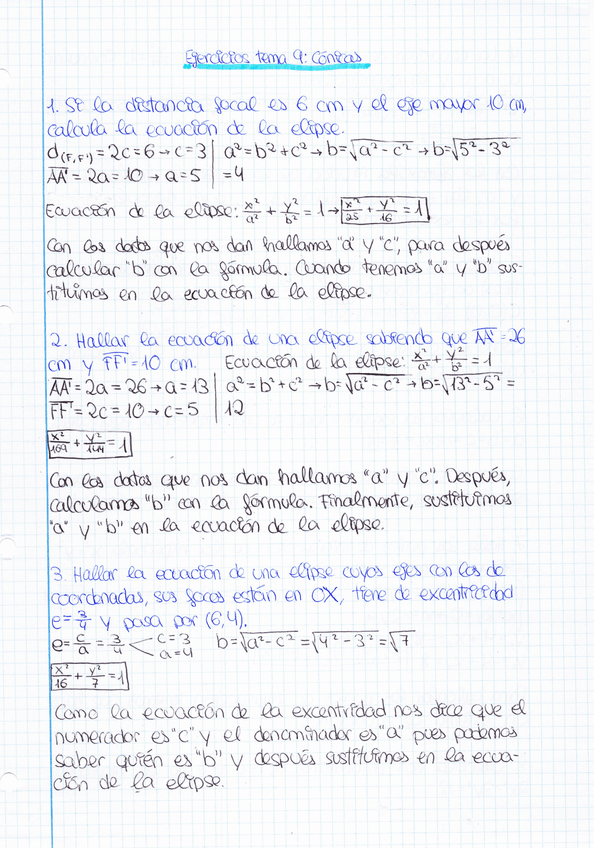 Ejercicios tema 9: Cónicas
1. Si la distancia focal es 6 cm y el eje mayor 10 cm,
calcula la ecuación de la elipse.
d(F,F') = 2c = 6 → c = 3 | a² = b² + c² → b = √a² - c² → b = √5² - 3²
AA' = 2a = 10 → a = 5 | = 4
Ecuación de la elipse: x²/a² + y²/b² = 1 → x²/25 + y²/16 = 1
Con los datos que nos dan hallamos "a" y "c", para después
calcular "b" con la fórmula. Cuando tenemos "a" y "b" sus-
tituimos en la ecuación de la elipse.
2. Hallar la ecuación de una elipse sabiendo que AA' = 26
cm y FF' = 10 cm. Ecuación de la elipse: x²/a² + y²/b² = 1
AA' = 2a = 26 → a = 13 | a² = b² + c² → b = √a² - c² → b = √13² - 5² =
FF' = 2c = 10 → c = 5 | 12
x²/169 + y²/144 = 1
Con los datos que nos dan hallamos "a" y "c". Después,
calculamos "b" con la fórmula. Finalmente, sustituimos
"a" y "b" en la ecuación de la elipse.
3. Hallar la ecuación de una elipse cuyos ejes con los de
coordenadas, sus focos están en OX, tiene de excentricidad
e = 3/4 y pasa por (6,4).
e = c/a = 3/4 c = 3 a = 4 b = √a² - c² = √4² - 3² = √7
x²/16 + y²/7 = 1
Como la ecuación de la excentridad nos dice que el
numerador es "c" y el denominador es "a" pues podemos
saber quién es "b" y después sustituimos en la ecua-
ción de la elipse.